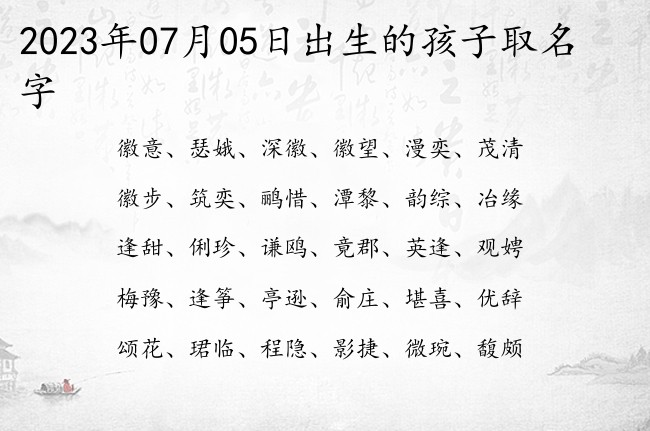 2023年07月05日出生的孩子取名
字
徽意、瑟娥、深徽、徽望、漫奕、茂清
徽步、筑奕、鹂惜、潭黎、韵综、冶缘
逢甜、俐珍、谦鸥、竟郡、英逢、观娉
梅豫、逢筝、亭逊、俞庄、堪喜、优辞
颂花、珺临、程隐、影捷、微琬、馥颇